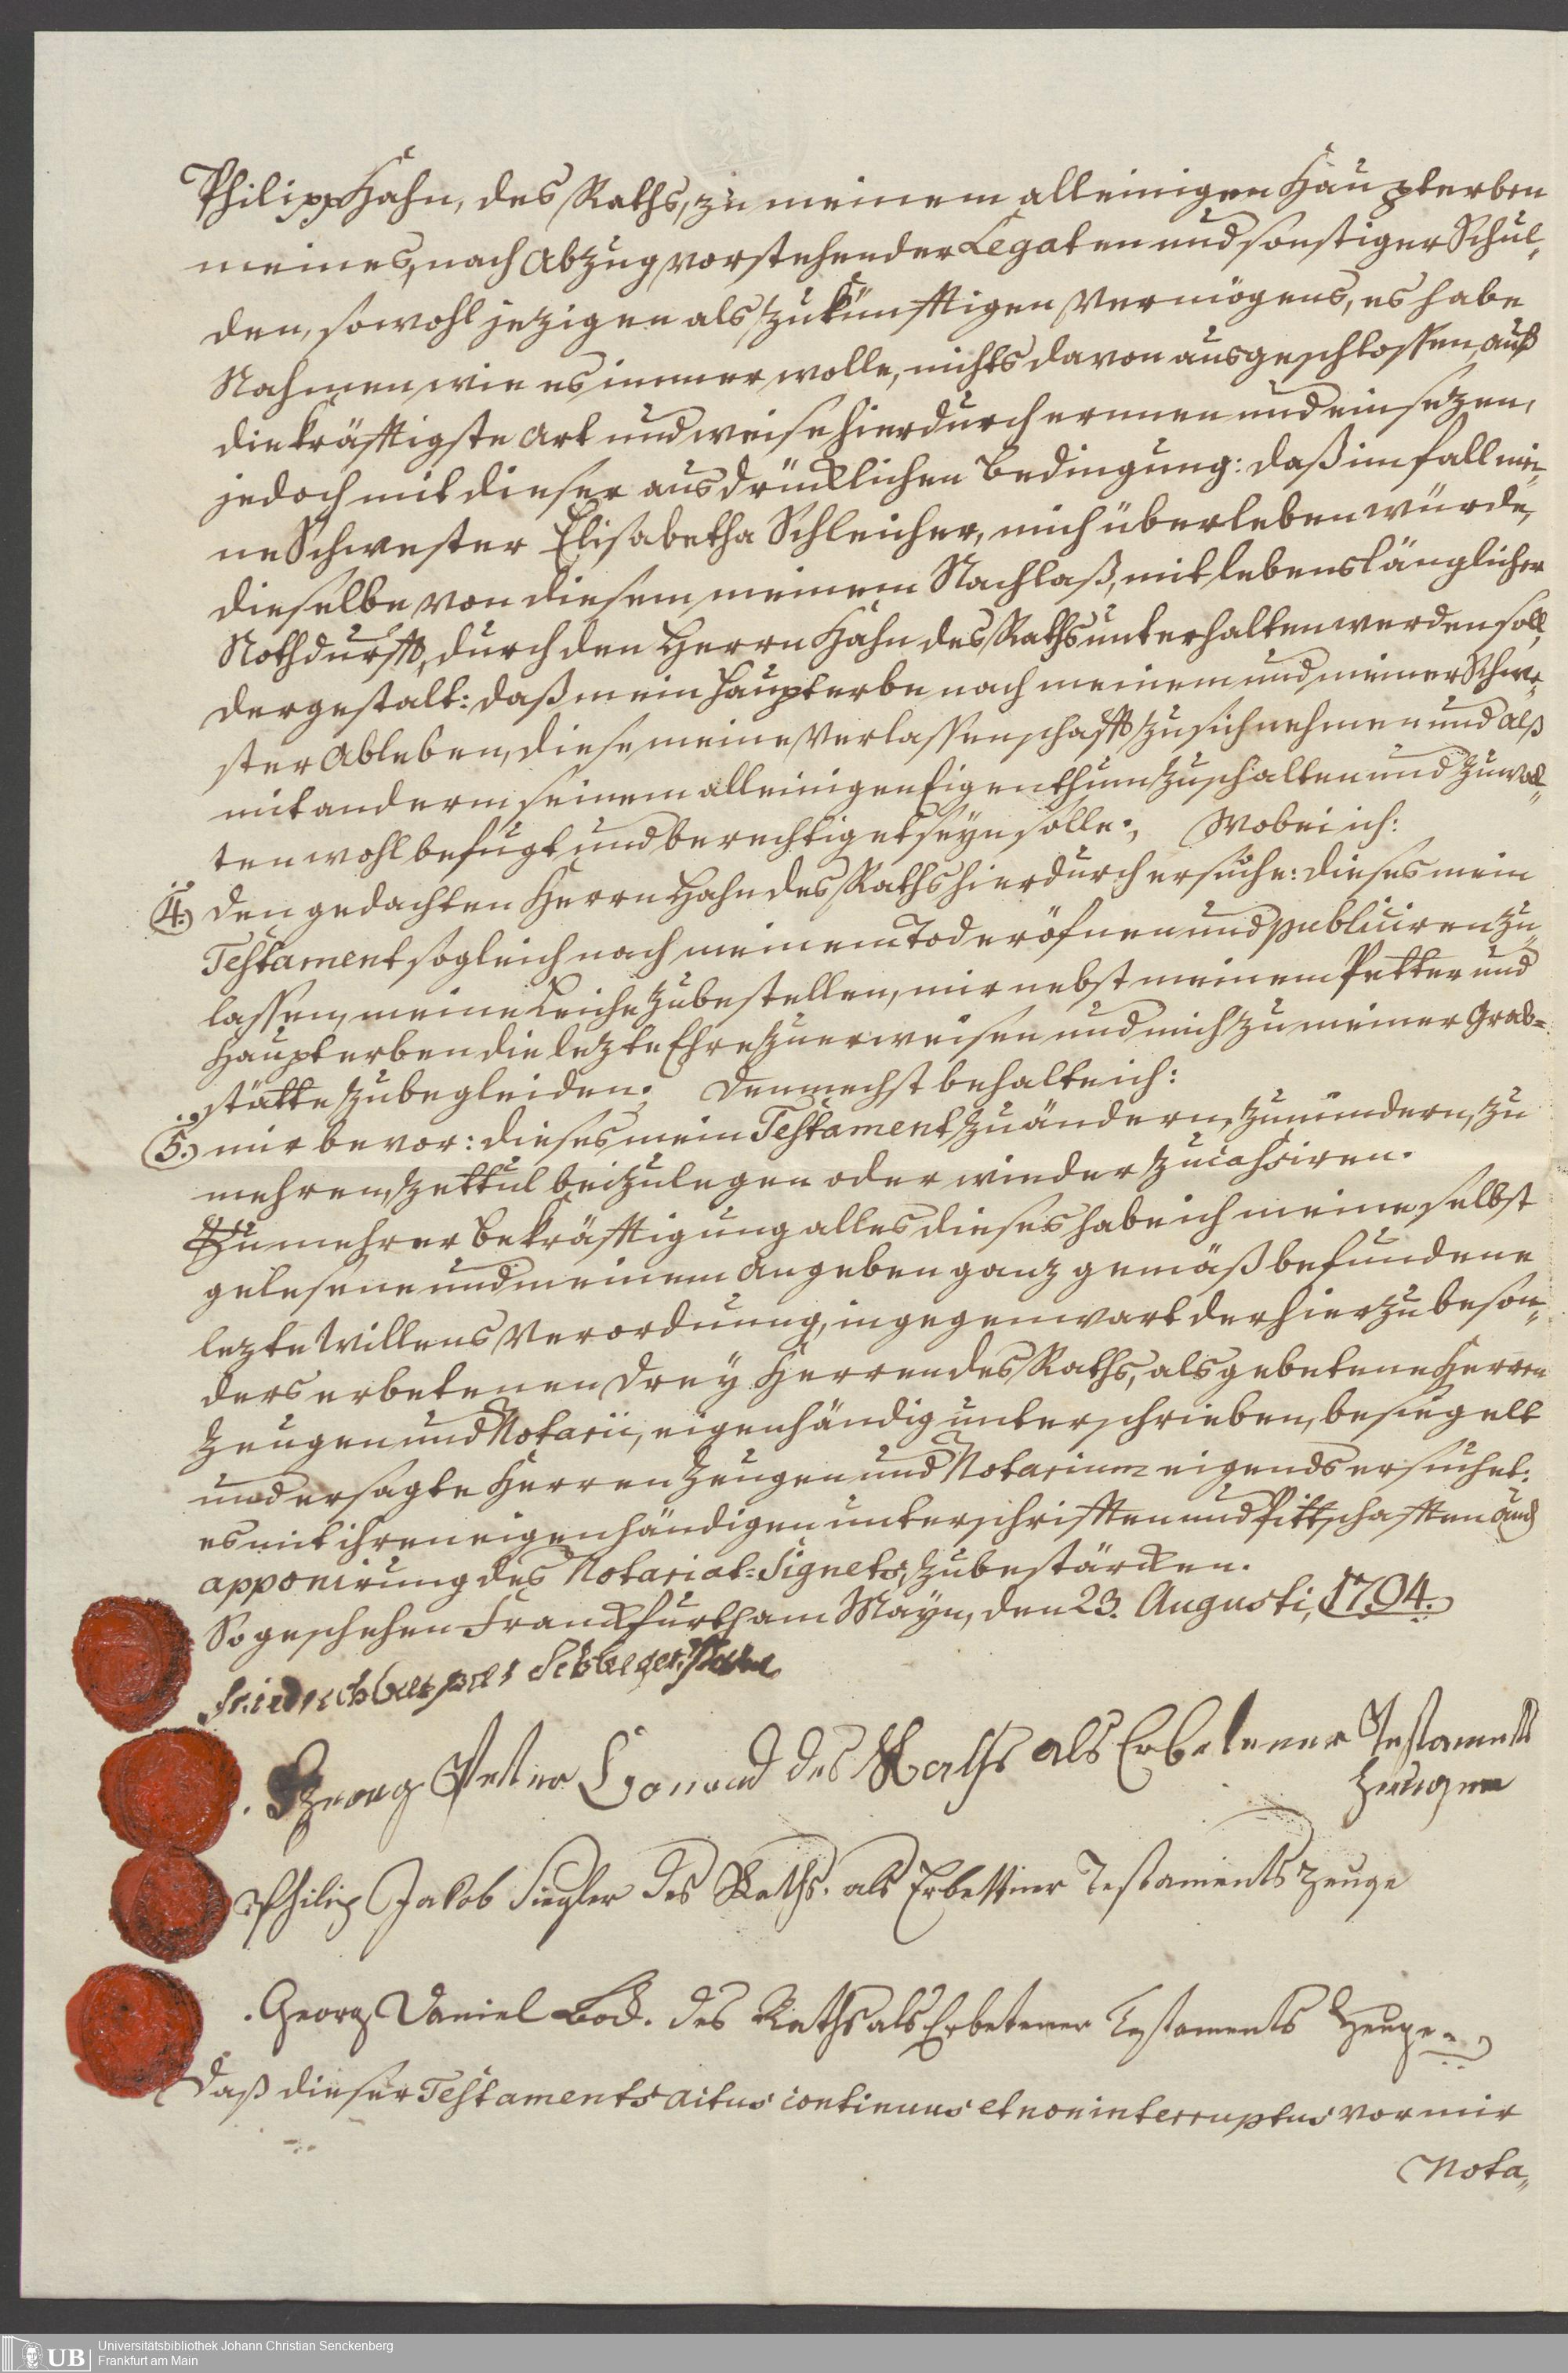 Philipp Hahn, des Raths, zu meinem alleinigen Haupterben
meines, nach Abzug vorstehender Legaten und sonstiger Schul„
den, sowohl jezigen als zukünfftigen Vermögens, es habe
Nahmen wie es immer wolle, nichts davon ausgeschlossen, auf
die kräfftigste Art und weise hierdurch ernnen und einsezen,
jedoch mit dieser ausdrücklichen Bedingung: daß im fall mei„
ne Schwester Elisabetha Schleicher, mich überleben würde,
dieselbe von diesem meinem Nachlaß, mit lebenslänglicher
Nothdurfft, durch den Herrn Hahn des Raths unterhalten werden soll,
dergestalt: daß mein Haupterbe nach meinem und meiner Schwe„
ster Ableben, diese meine Verlassenschafft zu sich nehmen und alß
mit anderm seinem alleinigen Eigenthum zu schalten und zu wal„
ten wohl befugt und berechtiget seyn solle. Wobei ich:
4.) den gedachten Herrn Hahn des Raths hierdurch ersuche: dieses mein
Testament sogleich nach meinem Tod eröfnen und publiciren zu
lassen, meine Leiche zu bestellen, mir nebst meinem Petter und
Haupterben die lezte Ehre zu erweisen und mich zu meiner Grab=
stätte zu begleiden. Demnechst behalte ich:
5.) mir bevor: dieses mein Testament zu ändern, zu mindern, zu
mehren, Zettul beizulegen oder wieder zu cassiren.
Zu mehrer Bekräfftigung alles dieses habe ich meine selbst
gelesene und meinem Angeben ganz gemäß befundene
lezte Willens Verordnung, in gegenwart der hierzu beson„
ders erbetenen drey Herren des Raths, als gebetene Herren
Zeugen und Notarii, eigenhändig unterschrieben, besiegelt
und ersagte Herren Zeugen und Notarium eigends ersuchet:
es mit ihren eigenhändigen unterschrifften und Pittschafften auch
apponirung des Notariat=Signets, zu bestärcken.
So geschehen Franckfurth am Mayn, den 23. Augusti, 1794.
Georg Peter des Raths als Erbetener Testaments
Zeugen
Philip Jakob Siegler des Raths. als Erbettner Testaments Zeuge
Georg Daniel Bod. des Raths als Erbetener Testaments Zeuge
Daß dieser Testaments actus continuus et non interruptus vor mir
Nota„
UB
Universitätsbibliothek Johann Christian Senckenberg
Frankfurt am Main